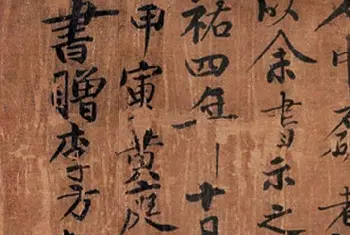 中老
以余書示之
祐四年十
甲寅黃庭
書贈李方